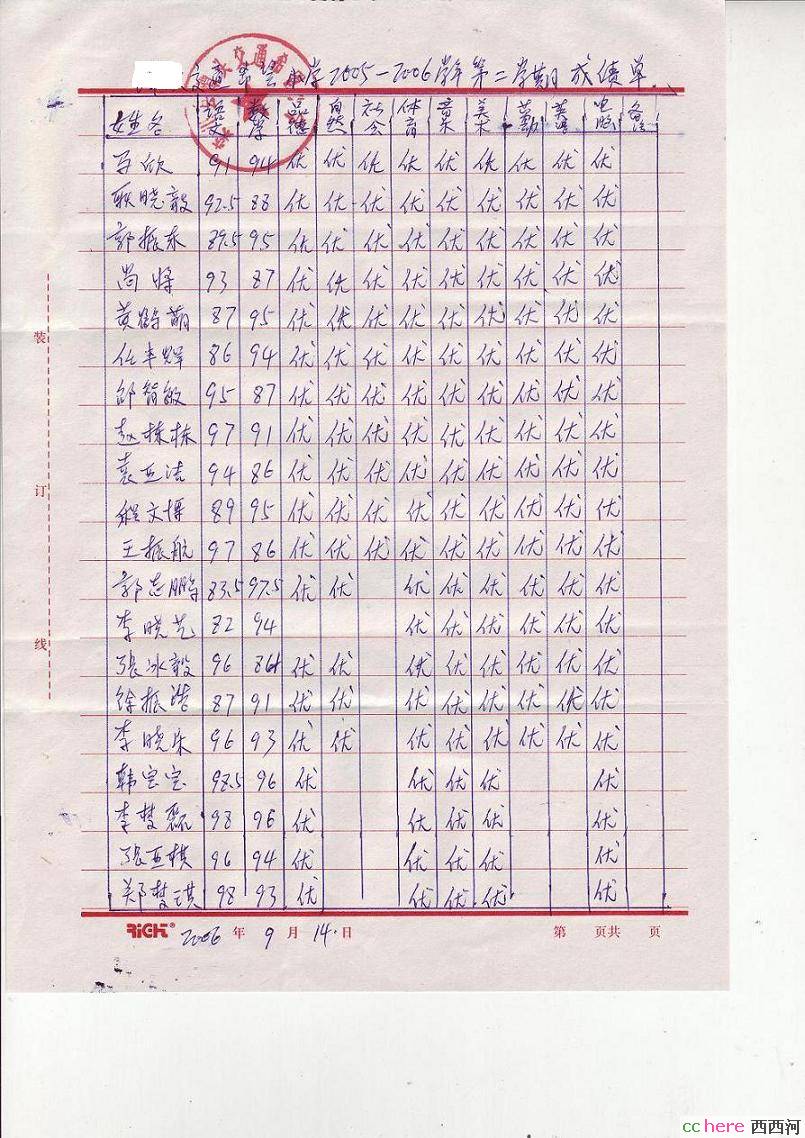 小学2005-2006学年第二学期成绩单
姓名 语文 数学 品德 自然 社会 体育 音乐 美术 勤 英语 电脑 备注
91 94 优 优 优 优 优 优 优 优 优
耿晓毅 92.5 88 优 优 优 优 优 优 优 优 优
郭振东 89.5 95 优 优 优 优 优 优 优 优 优
尚将 93 87 优 优 优 优 优 优 优 优 优
黄鹤萌 87 95 优 优 优 优 优 优 优 优 优
任丰辉 86 94 优 优 优 优 优 优 优 优 优
邱智敏 95 87 优 优 优 优 优 优 优 优 优
赵栋栋 97 91 优 优 优 优 优 优 优 优 优
袁亚洁 94 86 优 优 优 优 优 优 优 优 优
程文博 89 95 优 优 优 优 优 优 优 优 优
王振航 97 86 优 优 优 优 优 优 优 优 优
郭志鹏 83.5 97.5 优 优 优 优 优 优 优 优
李晓艺 82 94 优 优 优 优 优 优
张冰毅 96 86 优 优 优 优 优 优 优 优
徐振浩 87 91 优 优 优 优 优 优 优 优
李晓乐 96 93 优 优 优 优 优 优 优 优
韩宝宝 98.5 96 优 优 优 优 优
李梦磊 98 96 优 优 优 优 优
张亚棋 96 94 优 优 优 优 优
郑梦琪 98 93 优 优 优 优 优
装
订
线
RiCH® 2006 年 9 月 14 日 第 页共 页
cchere 西西河